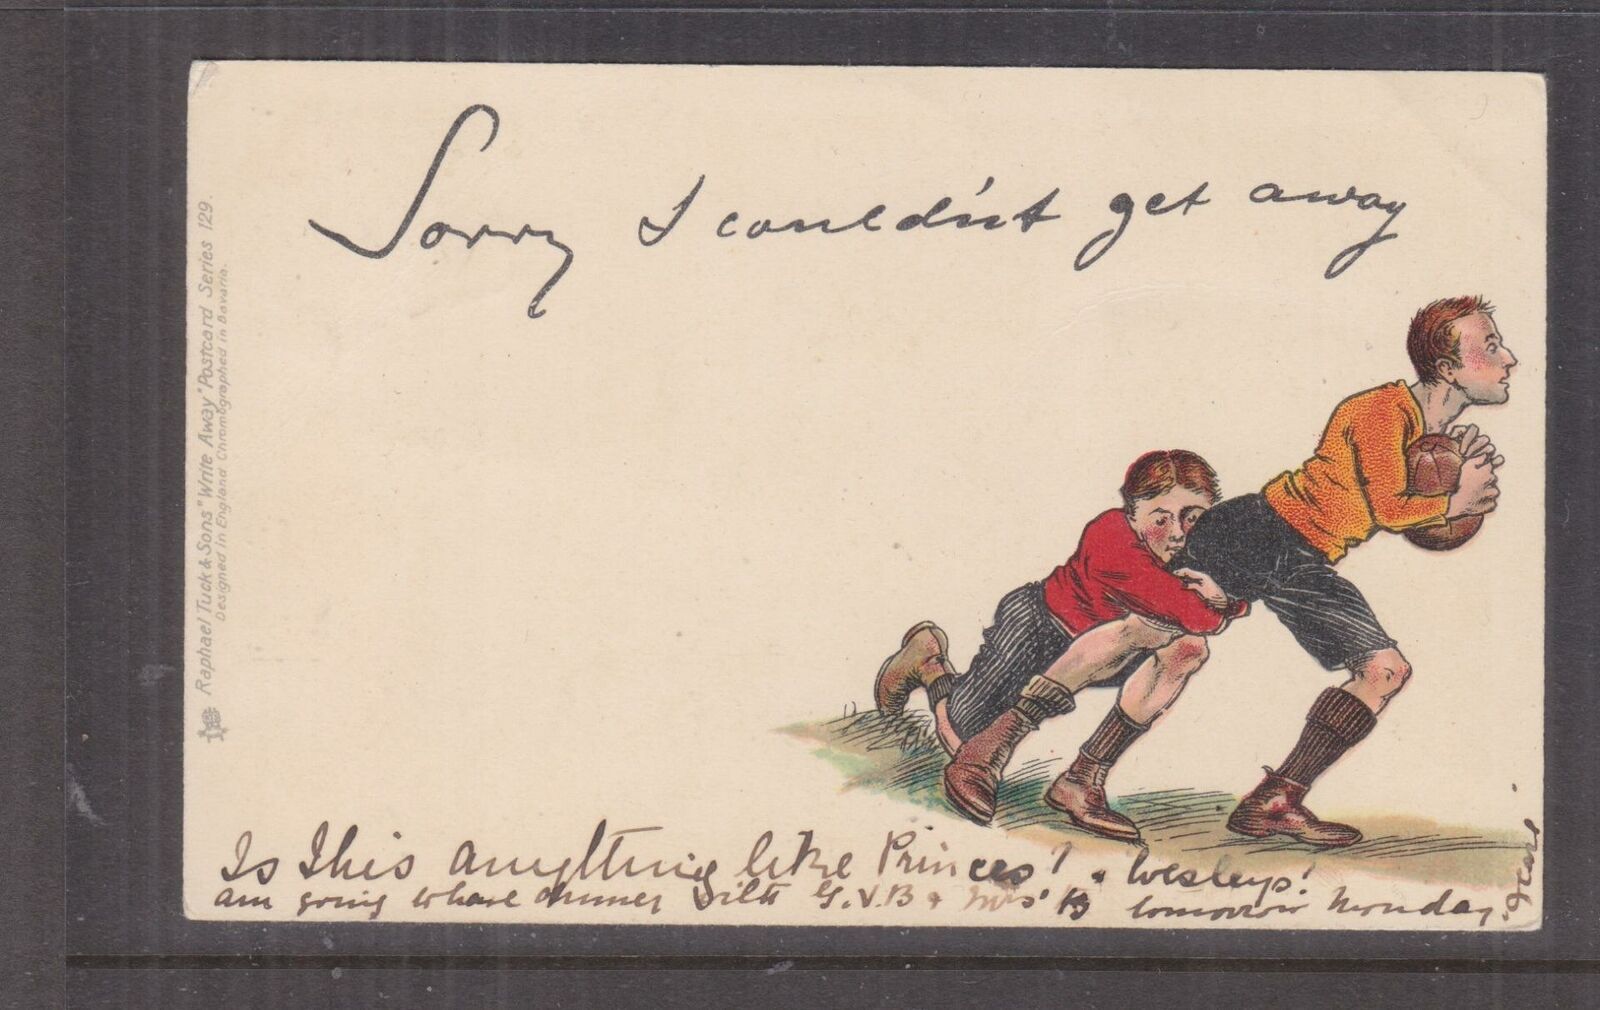 Sorry I couldn't get away
Raphael Tuck & Sons "Write Away" Postcard Series 129.
Designed in England Chromographed in Bavaria.
Is this anything like Princes? & Wesleys!
am going to have dinner with G.V.B & Mrs B tomorrow Monday.